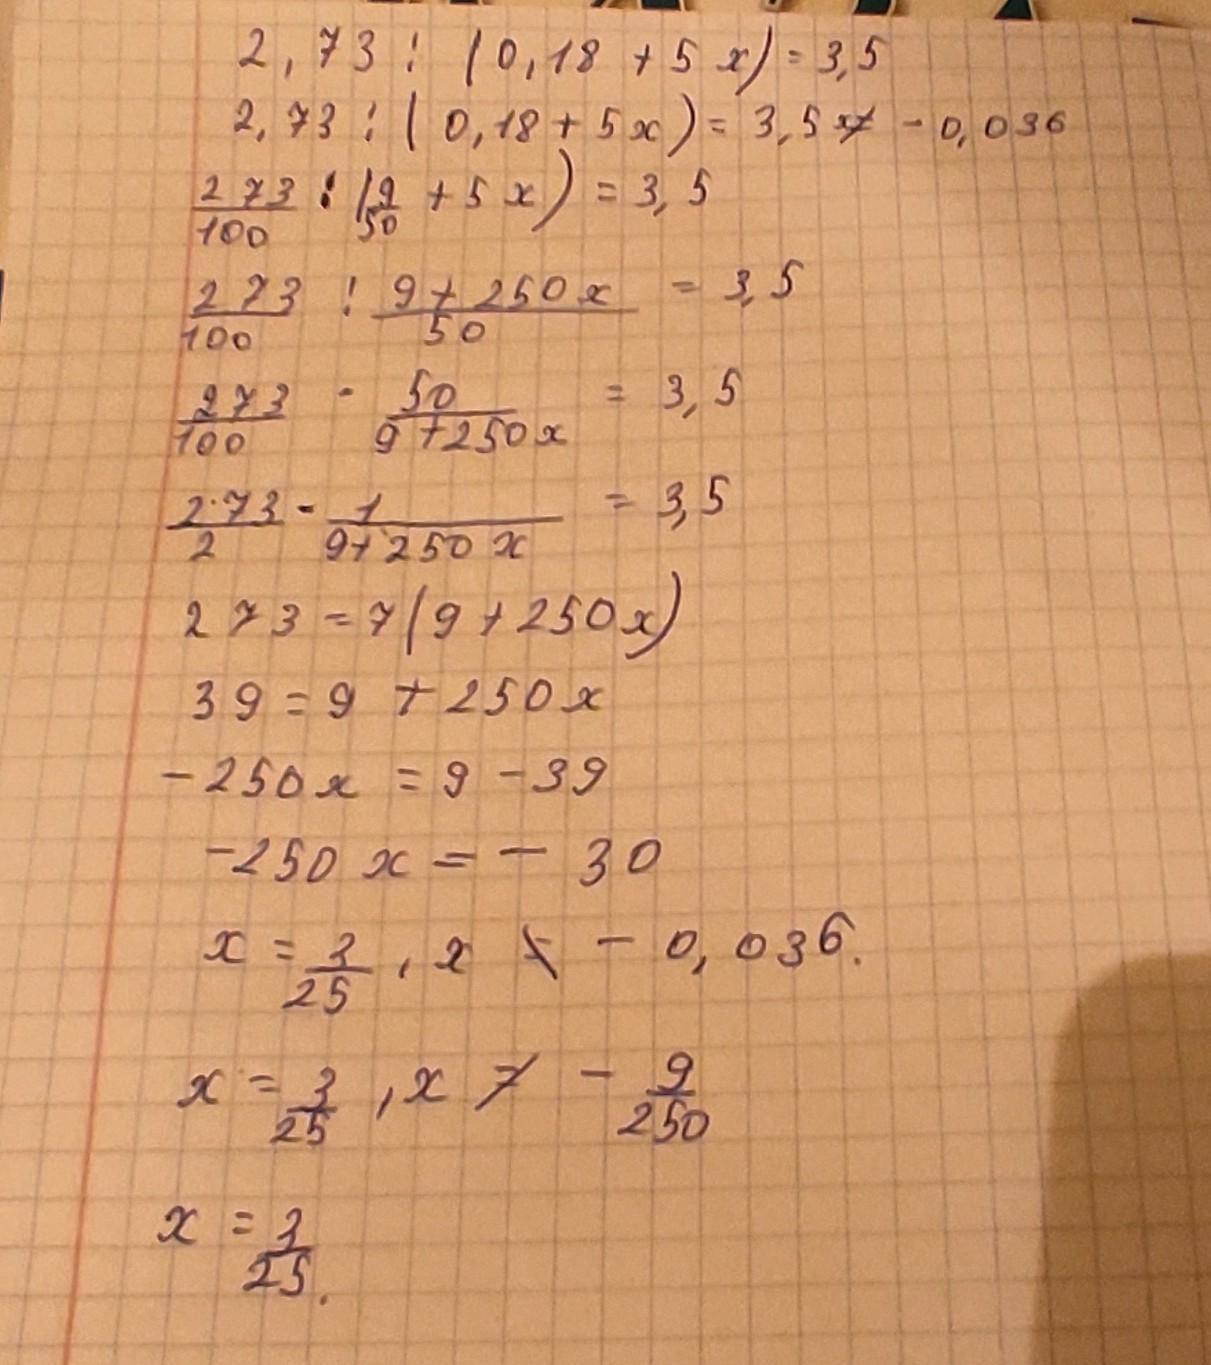 2,73 : (0,18 + 5x) = 3,5
2,73 : (0,18 + 5x) = 3,5 x ≠ -0,036
273/100 : (9/50 + 5x) = 3,5
273/100 : (9 + 250x)/50 = 3,5
273/100 · 50/(9 + 250x) = 3,5
273/2 · 1/(9 + 250x) = 3,5
273 = 7(9 + 250x)
39 = 9 + 250x
-250x = 9 - 39
-250x = - 30
x = 3/25, x ≠ - 0,036.
x = 3/25, x ≠ - 9/250
x = 3/25.